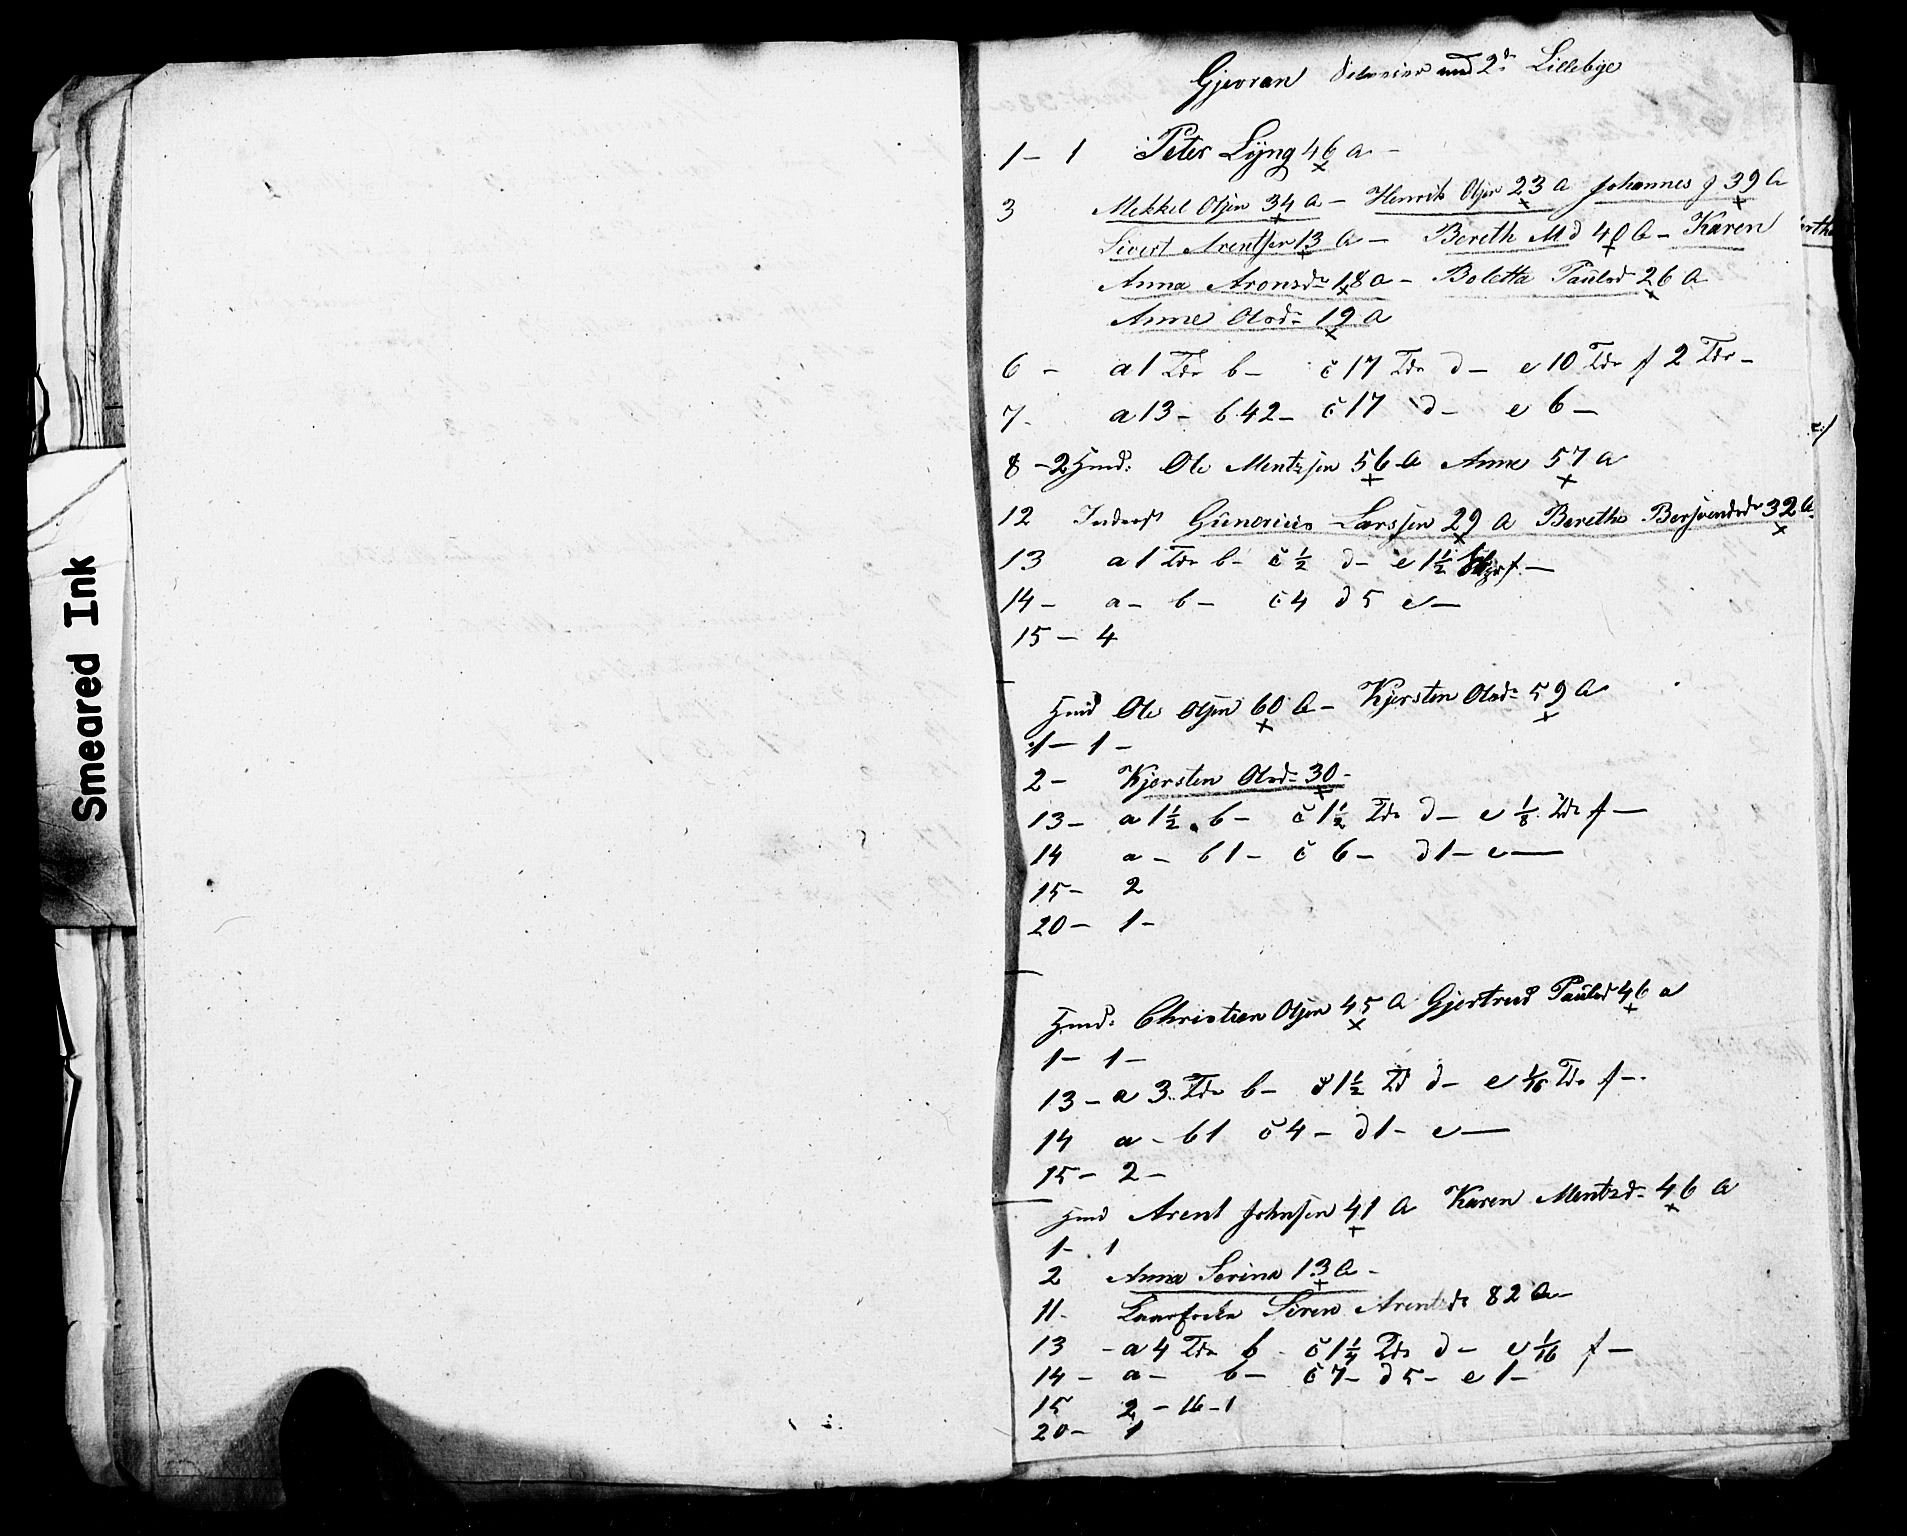 Smeared Ink
Gjevran med 2de Lillebye
1 - 1 Peter Lÿng 46 a -
3 Mekkel Olsen 34 a - Henrik Olsen 23 a Johannes J 39 a
Sivert Arentsen 13 a - Bereth M d 40 a - Karen
Anna Aronsdr 18 a - Boletta Paulsd 26 a
Anne Olsdr 19 a
6 - a 1 Tdr b - c 17 Tdr d - e 10 Tdr f 2 Tdr -
7 - a 13 - b 42 - c 17 d - e 6 -
8 - 2 Hmd: Ole Mentzsen 56 a Anne 57 a
12 Inderst Gunerius Larssen 29 a Berethe Bersvendsdr 32 a
13 a 1 Tdr b - c ½ d - e 1½ f -
14 - a - b - c 4 d 5 e -
15 - 4
Hmd Ole Olsen 60 a - Kjersten Olsdr 59 a
1 - 1 -
2 - Kjersten Olsdr 30 -
13 - a 1½ b - c 1½ Tdr d - e ⅛ Tdr f -
14 a - b 1 - c 6 - d 1 - e -
15 - 2
20 - 1 -
Hmd: Christian Olsen 45 a Gjertrud Paulsd 46 a
1 - 1 -
13 - a 3 Tdr b - c 1½ Td d - e 1/16 Tdr f -
14 a - b 1 c 4 - d 1 - e -
15 - 2 -
Hmd Arent Johnsen 41 a Karen Mentzdr 46 a
1 - 1
2 Anna Serina 13 a -
11 - Seren Arentsdr 82 a -
13 - a 4 Tdr b - c 1¼ Tdr d - e 1/16 f -
14 - a - b - c 7 - d 5 - e 1 -
15 2 - 16 - 1
20 - 1